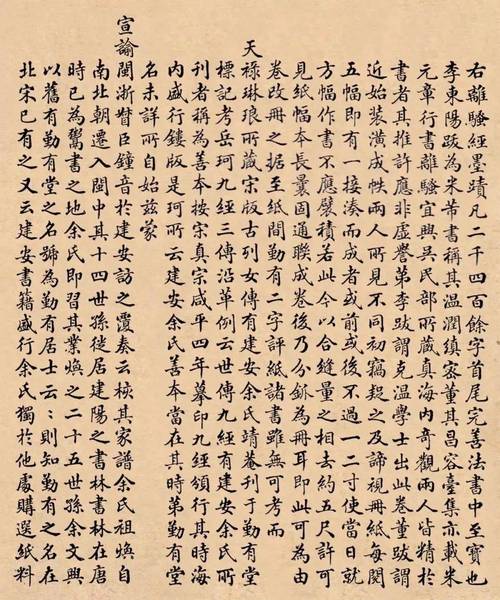 右離騷經墨蹟凡二千四百餘字首尾完善法書中至寶也
李東陽跋為米芾書稱其温潤縝密董其昌容臺集亦載米
元章行書離騷宜興吳民部所藏真海內奇觀兩人皆精於
書者其推許應非虛譽第李跋謂克温學士出此卷董跋謂
近始裝潢成帙兩人所見不同初竊疑之及諦視冊紙每閱
五幅即有一接湊而成者或前或後不過一二寸使當日就
方幅作書不應襞積若此今以合縫量之相去約五尺許可
見紙幅本長曩固通聯成卷後乃分為冊耳即此可為由
卷改冊之据至紙間勤有二字評紙諸書雖無可考而
天祿琳琅所藏宋版古列女傳有建安余氏靖菴刊于勤有堂
標記考岳珂九經三傳沿革例云世傳九經有建安余氏所
刊者稱為善本按宋真宗咸平四年摹印九經頒行其時海
內盛行鏤版是珂所云建安余氏善本當在其時第勤有堂
名未詳所自始茲蒙
宣諭閩浙督臣鐘音於建安訪之覆奏云檢其家譜余氏祖煥自
南北朝遷入閩中其十四世孫徙居建陽之書林書林在唐
時已為鬻書之地余氏即習其業煥之二十五世孫余文興
以舊有勤有堂之名號為勤有居士云〻則知勤有之名在
北宋已有之又云建安書籍盛行余氏獨於他處購選紙料